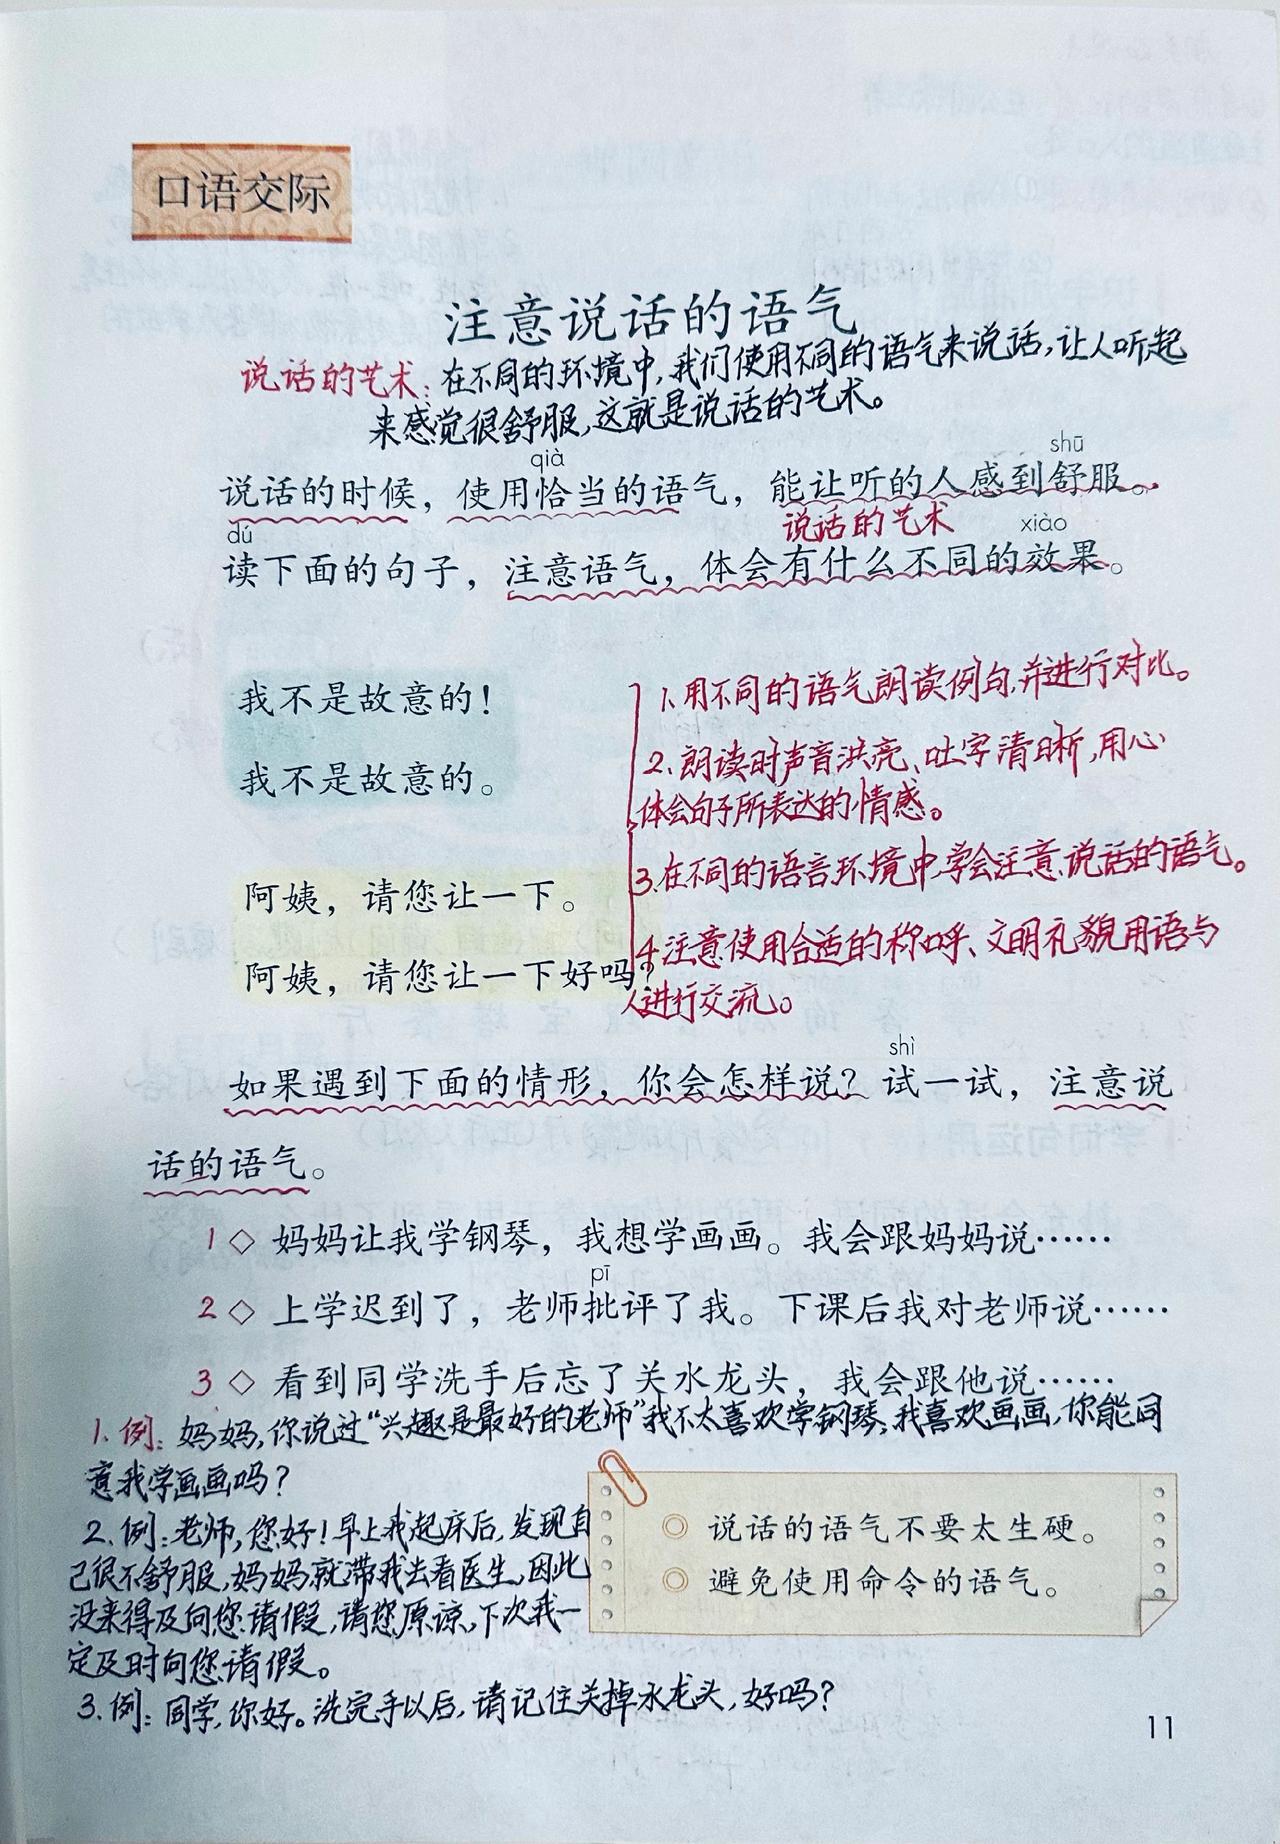 口语交际
注意说话的语气
说话的艺术：在不同的环境中，我们使用不同的语气来说话，让人听起
来感觉很舒服，这就是说话的艺术。
qià shū
说话的时候，使用恰当的语气，能让听的人感到舒服。
说话的艺术
dú xiào
读下面的句子，注意语气，体会有什么不同的效果。
我不是故意的！
我不是故意的。
阿姨，请您让一下。
阿姨，请您让一下好吗？
1.用不同的语气朗读例句，并进行对比。
2.朗读时声音洪亮、吐字清晰，用心
体会句子所表达的情感。
3.在不同的语言环境中，学会注意说话的语气。
4.注意使用合适的称呼、文明礼貌用语与
人进行交流。
shì
如果遇到下面的情形，你会怎样说？试一试，注意说
话的语气。
1◇妈妈让我学钢琴，我想学画画。我会跟妈妈说……
pī
2◇上学迟到了，老师批评了我。下课后我对老师说……
3◇看到同学洗手后忘了关水龙头，我会跟他说……
1.例：妈妈，你说过“兴趣是最好的老师”我不太喜欢学钢琴，我喜欢画画，你能同
意我学画画吗？
2.例：老师，您好！早上我起床后，发现自
己很不舒服，妈妈就带我去看医生，因此
没来得及向您请假，请您原谅，下次我一
定及时向您请假。
3.例：同学，你好。洗完手以后，请记住关掉水龙头，好吗？
◎ 说话的语气不要太生硬。
◎ 避免使用命令的语气。
11